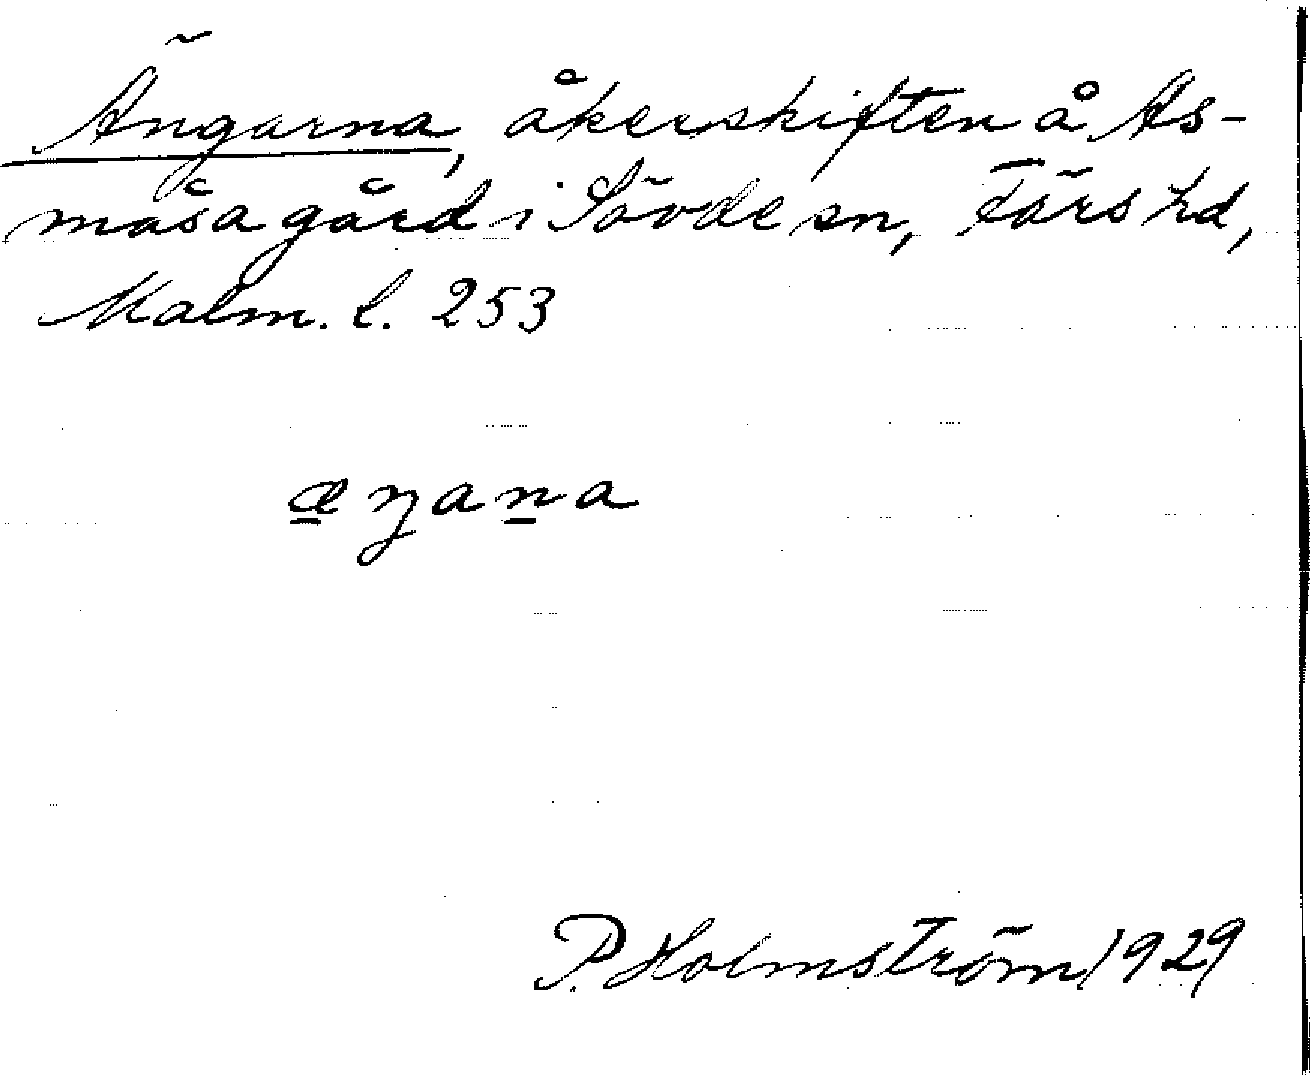 Ängarna, åkerskiften å As-
måsa gård i Sövde sn, Färs hd,
Malm. l. 253
æŋana
P. Holmström 1929